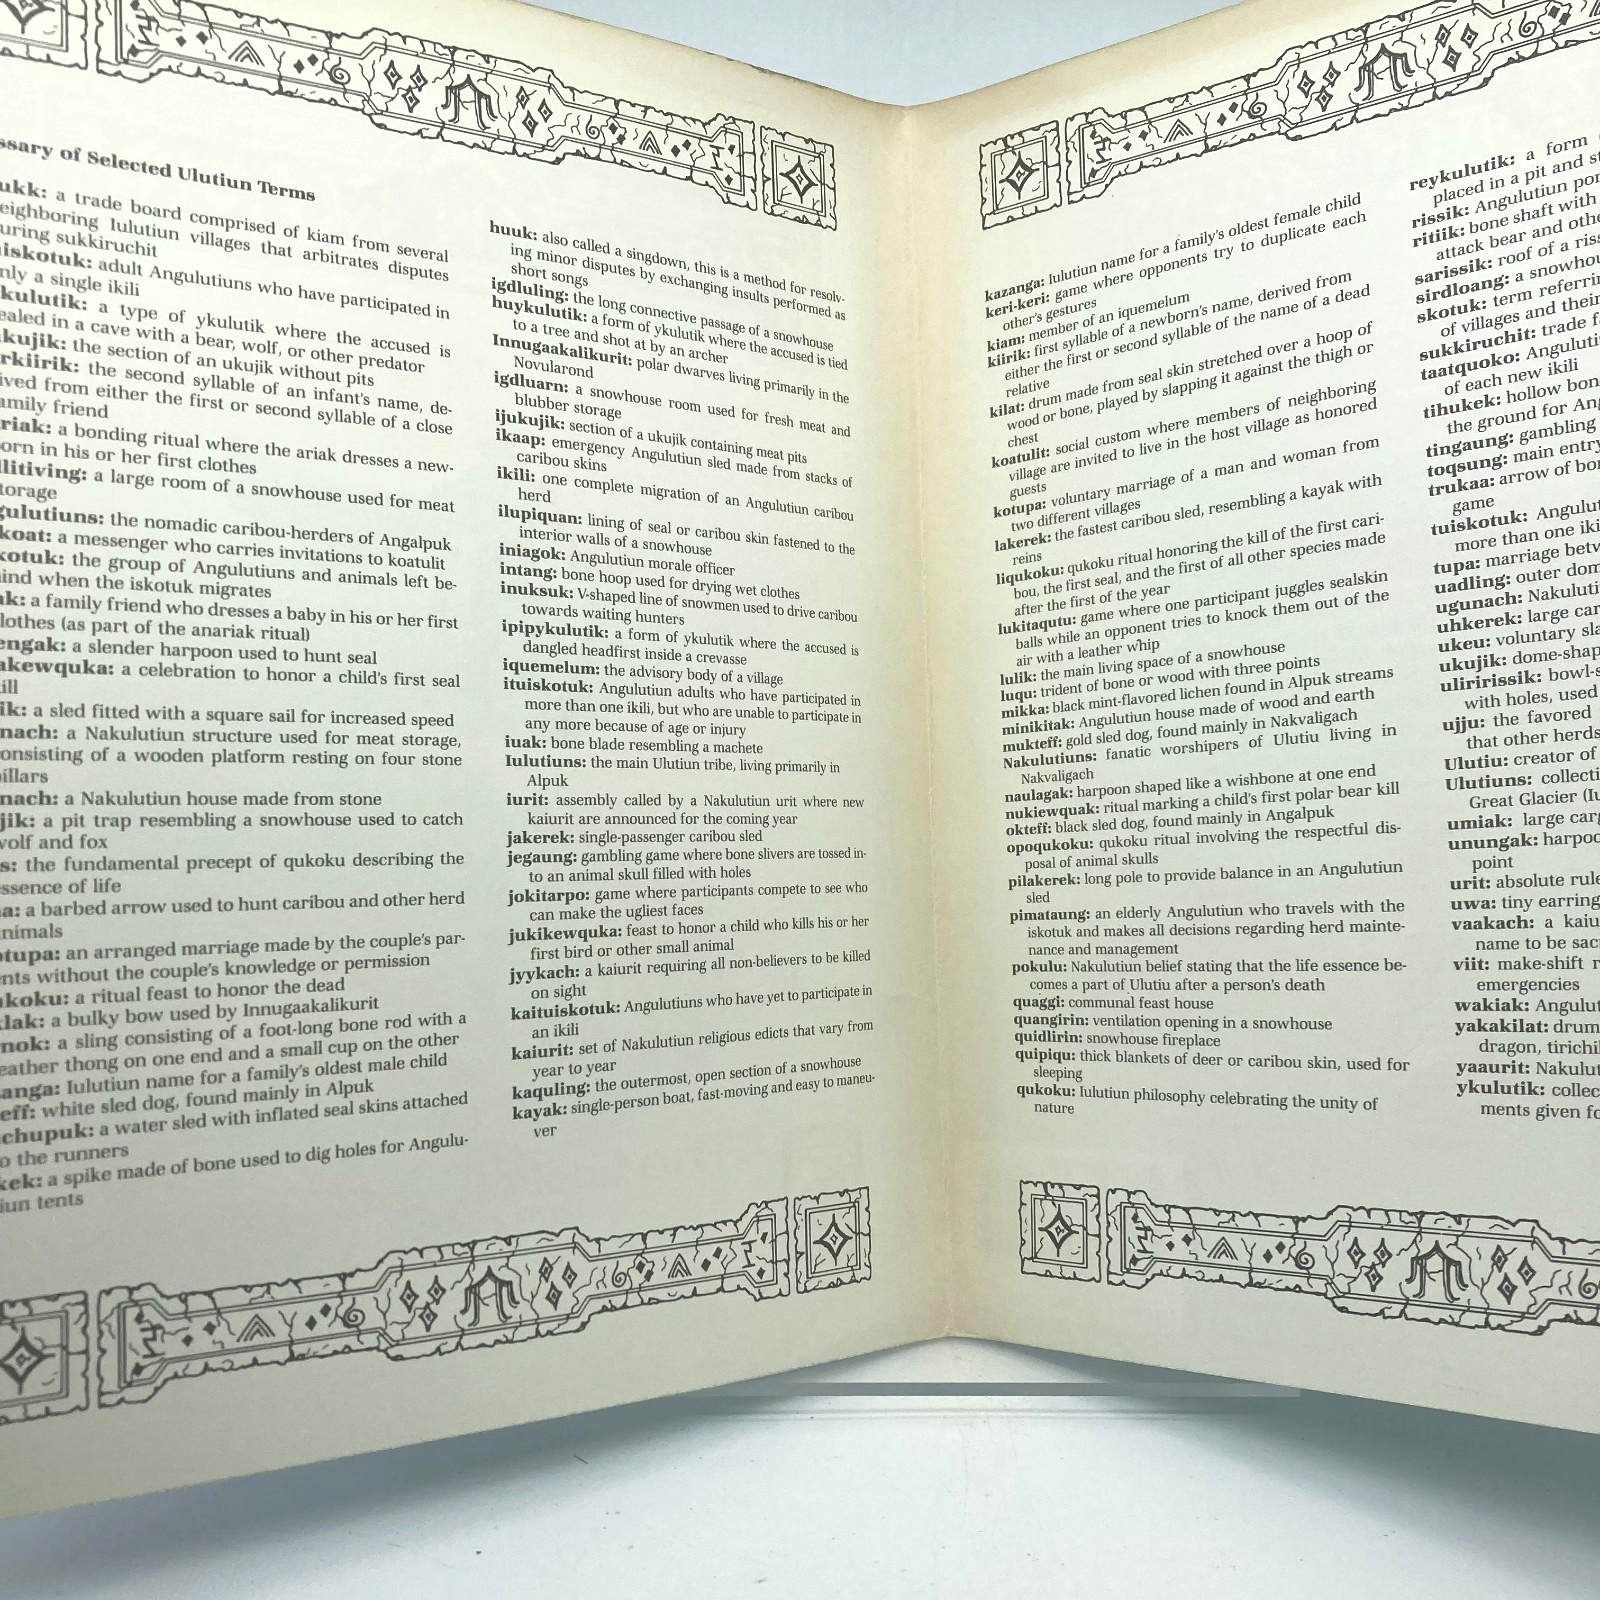 ssary of Selected Ulutiun Terms
ukk: a trade board comprised of kiam from several
eighboring Iulutiun villages that arbitrates disputes
uring sukkiruchit
iskotuk: adult Angulutiuns who have participated in
nly a single ikili
kulutik: a type of ykulutik where the accused is
ealed in a cave with a bear, wolf, or other predator
kujik: the section of an ukujik without pits
rkiirik: the second syllable of an infant's name, de-
ived from either the first or second syllable of a close
amily friend
riak: a bonding ritual where the ariak dresses a new-
orn in his or her first clothes
llitiving: a large room of a snowhouse used for meat
torage
gulutiuns: the nomadic caribou-herders of Angalpuk
koat: a messenger who carries invitations to koatulit
kotuk: the group of Angulutiuns and animals left be-
ind when the iskotuk migrates
ak: a family friend who dresses a baby in his or her first
lothes (as part of the anariak ritual)
engak: a slender harpoon used to hunt seal
akewquka: a celebration to honor a child's first seal
ill
ik: a sled fitted with a square sail for increased speed
nach: a Nakulutiun structure used for meat storage,
onsisting of a wooden platform resting on four stone
illars
nach: a Nakulutiun house made from stone
jik: a pit trap resembling a snowhouse used to catch
wolf and fox
s: the fundamental precept of qukoku describing the
ssence of life
a: a barbed arrow used to hunt caribou and other herd
nimals
otupa: an arranged marriage made by the couple's par-
nts without the couple's knowledge or permission
ukoku: a ritual feast to honor the dead
lak: a bulky bow used by Innugaakalikurit
nok: a sling consisting of a foot-long bone rod with a
eather thong on one end and a small cup on the other
anga: Iulutiun name for a family's oldest male child
eff: white sled dog, found mainly in Alpuk
chupuk: a water sled with inflated seal skins attached
o the runners
kek: a spike made of bone used to dig holes for Angulu-
iun tents
huuk: also called a singdown, this is a method for resolv-
ing minor disputes by exchanging insults performed as
short songs
igdluling: the long connective passage of a snowhouse
huykulutik: a form of ykulutik where the accused is tied
to a tree and shot at by an archer
Innugaakalikurit: polar dwarves living primarily in the
Novularond
igdluarn: a snowhouse room used for fresh meat and
blubber storage
ijukujik: section of a ukujik containing meat pits
ikaap: emergency Angulutiun sled made from stacks of
caribou skins
ikili: one complete migration of an Angulutiun caribou
herd
ilupiquan: lining of seal or caribou skin fastened to the
interior walls of a snowhouse
iniagok: Angulutiun morale officer
intang: bone hoop used for drying wet clothes
inuksuk: V-shaped line of snowmen used to drive caribou
towards waiting hunters
ipipykulutik: a form of ykulutik where the accused is
dangled headfirst inside a crevasse
iquemelum: the advisory body of a village
ituiskotuk: Angulutiun adults who have participated in
more than one ikili, but who are unable to participate in
any more because of age or injury
iuak: bone blade resembling a machete
Iulutiuns: the main Ulutiun tribe, living primarily in
Alpuk
iurit: assembly called by a Nakulutiun urit where new
kaiurit are announced for the coming year
jakerek: single-passenger caribou sled
jegaung: gambling game where bone slivers are tossed in-
to an animal skull filled with holes
jokitarpo: game where participants compete to see who
can make the ugliest faces
jukikewquka: feast to honor a child who kills his or her
first bird or other small animal
jyykach: a kaiurit requiring all non-believers to be killed
on sight
kaituiskotuk: Angulutiuns who have yet to participate in
an ikili
kaiurit: set of Nakulutiun religious edicts that vary from
year to year
kaquling: the outermost, open section of a snowhouse
kayak: single-person boat, fast-moving and easy to maneu-
ver
kazanga: Iulutiun name for a family's oldest female child
keri-keri: game where opponents try to duplicate each
other's gestures
kiam: member of an iquemelum
kiirik: first syllable of a newborn's name, derived from
either the first or second syllable of the name of a dead
relative
kilat: drum made from seal skin stretched over a hoop of
wood or bone, played by slapping it against the thigh or
chest
koatulit: social custom where members of neighboring
village are invited to live in the host village as honored
guests
kotupa: voluntary marriage of a man and woman from
two different villages
lakerek: the fastest caribou sled, resembling a kayak with
reins
liqukoku: qukoku ritual honoring the kill of the first cari-
bou, the first seal, and the first of all other species made
after the first of the year
lukitaqutu: game where one participant juggles sealskin
balls while an opponent tries to knock them out of the
air with a leather whip
lulik: the main living space of a snowhouse
luqu: trident of bone or wood with three points
mikka: black mint-flavored lichen found in Alpuk streams
minikitak: Angulutiun house made of wood and earth
mukteff: gold sled dog, found mainly in Nakvaligach
Nakulutiuns: fanatic worshipers of Ulutiu living in
Nakvaligach
naulagak: harpoon shaped like a wishbone at one end
nukiewquak: ritual marking a child's first polar bear kill
okteff: black sled dog, found mainly in Angalpuk
opoqukoku: qukoku ritual involving the respectful dis-
posal of animal skulls
pilakerek: long pole to provide balance in an Angulutiun
sled
pimataung: an elderly Angulutiun who travels with the
iskotuk and makes all decisions regarding herd mainte-
nance and management
pokulu: Nakulutiun belief stating that the life essence be-
comes a part of Ulutiu after a person's death
quaggi: communal feast house
quangirin: ventilation opening in a snowhouse
quidlirin: snowhouse fireplace
quipiqu: thick blankets of deer or caribou skin, used for
sleeping
qukoku: Iulutiun philosophy celebrating the unity of
nature
reykulutik: a form
placed in a pit and st
rissik: Angulutiun por
ritiik: bone shaft with
attack bear and othe
sarissik: roof of a riss
sirdloang: a snowhou
skotuk: term referrin
of villages and their
sukkiruchit: trade f
taatquoko: Anguluti
of each new ikili
tihukek: hollow bon
the ground for Ang
tingaung: gambling
toqsung: main entry
trukaa: arrow of bon
game
tuiskotuk: Angulut
more than one iki
tupa: marriage betw
uadling: outer dom
ugunach: Nakuluti
uhkerek: large car
ukeu: voluntary sla
ukujik: dome-shap
uliririssik: bowl-s
with holes, used
ujju: the favored
that other herds
Ulutiu: creator of
Ulutiuns: collecti
Great Glacier (Iu
umiak: large carg
unungak: harpoo
point
urit: absolute rule
uwa: tiny earring
vaakach: a kaiu
name to be sac
viit: make-shift r
emergencies
wakiak: Angulut
yakakilat: drum
dragon, tirichil
yaaurit: Nakulut
ykulutik: collec
ments given fo